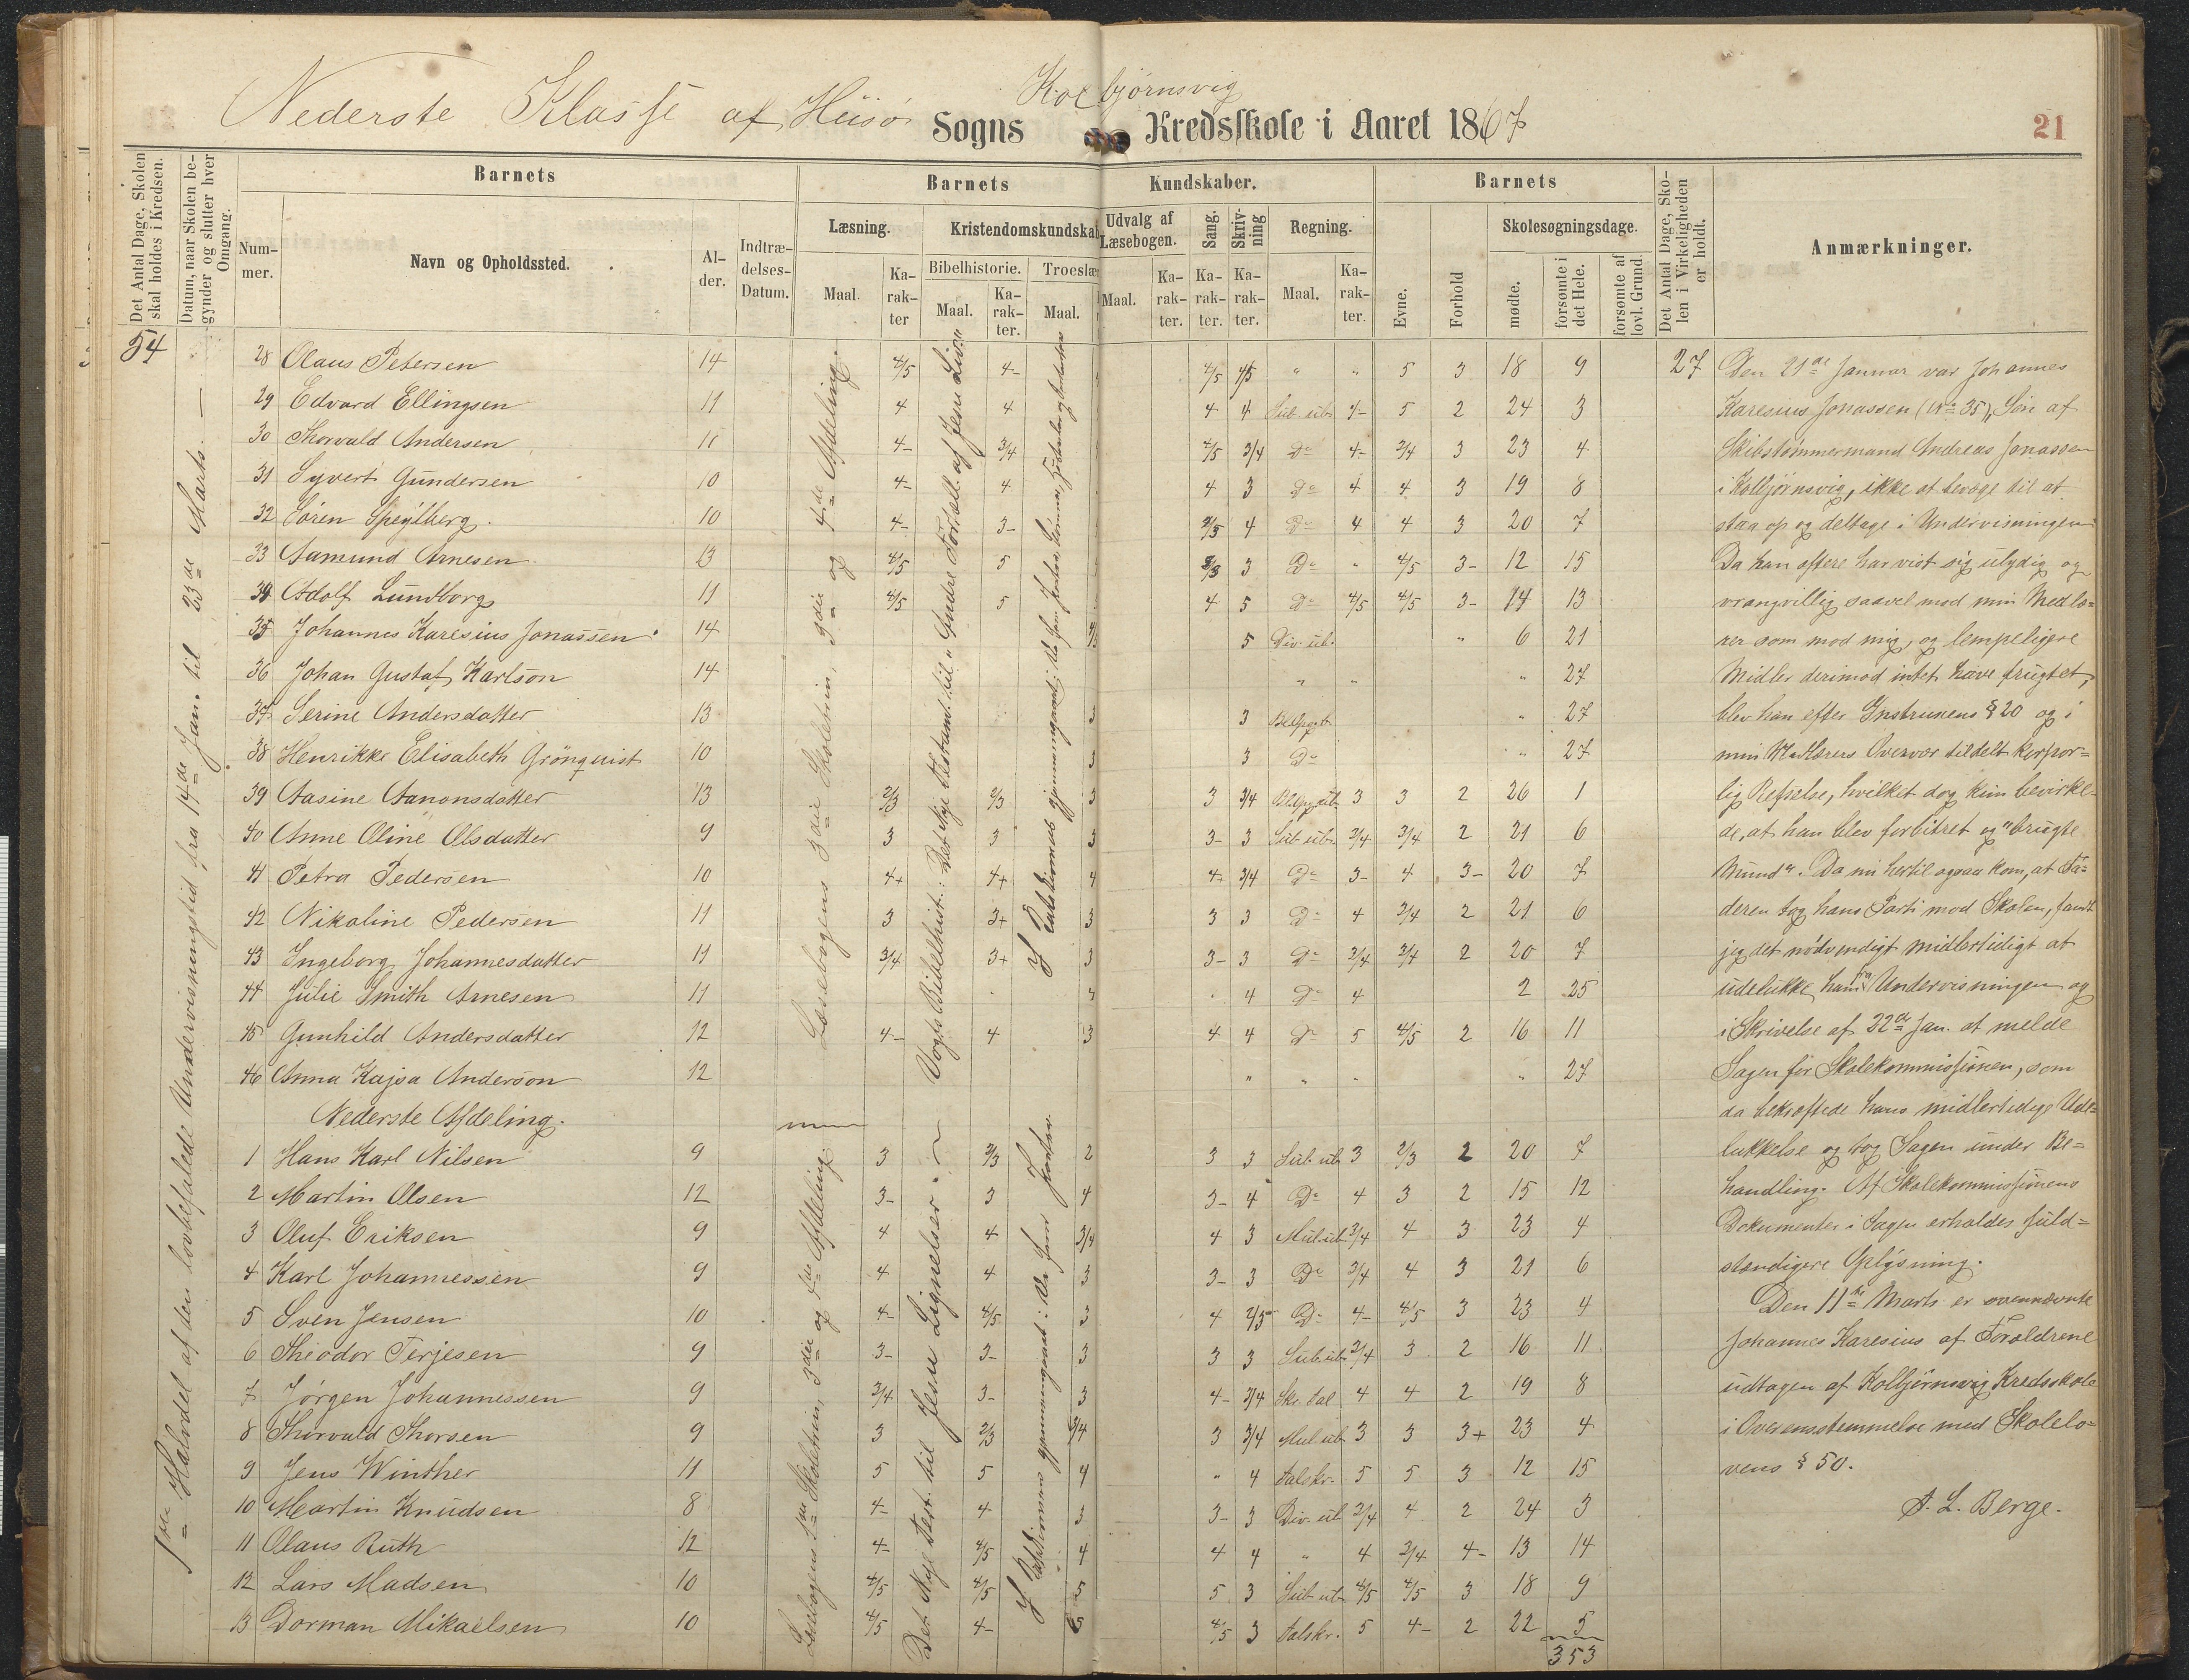 Nederste Klasse af Hisø Sogns Kolbjørnsvig Kredsskole i Aaret 1867
21
Det Antal Dage, Skolen skal holdes i Kredsen.
Datum, naar Skolen begynder og slutter hver Omgang.
Barnets
Nummer.
Navn og Opholdssted.
Alder.
Indtrædelses-Datum.
Barnets Kundskaber.
Læsning.
Maal.
Karakter
Kristendomskundskab
Bibelhistorie.
Maal.
Karakter.
Troeslær
Maal.
Udvalg af Læsebogen.
Maal.
Karakter.
Sang.
Karakter.
Skrivning
Karakter.
Regning.
Maal.
Karakter.
Barnets
Evne.
Forhold
Skolesøgningsdage.
mødte.
forsømte i det Hele.
forsømte af lovl. Grund.
Det Antal Dage, Skolen i Virkeligheden er holdt.
Anmærkninger.
54
1ste Halvdel af den lovbefalede Undervisningstid fra 14de Jan. til 23de Marts. —
Læsebogens 3die Skoletrin, 3die og 4de Afdeling.
Vogts Bibelhist.: Det Nye Testam. til "Andre Fortæll. af Jesu Liv."
28 Olaus Petersen 14 4/5 4- 4/5 4/5 " " 5 3 18 9 27
29 Edvard Ellingsen 11 4 4 4 4 Sub. ub. 4- 5 2 24 3
30 Thorvald Andersen 11 4- 3/4 4/5 3/4 Do 4- 3/4 3 23 4
31 Syvert Gundersen 10 4- 4 4 3 Do 4 4 3 19 8
32 Sören Speylberg. 10 4- 3- 4/5 4 Do 4 4 3 20 7
33 Aamund Arnesen 13 4/5 5 3 Do " 4/5 3- 12 15
34 Adolf Lundborg 11 4/5 5 4 5 Do 4/5 4/5 3- 14 13
35 Johannes Karesius Jonassen 14 5 Div. ub. " 6 21
36 Johan Gustaf Karlson 14 " " " 27
37 Serine Andersdatter 13 3 3 " 27
38 Henrikke Elisabeth Grönquist 10 3 3 Do " 27
39 Aasine Aanonsdatter 13 2/3 2/3 3 3 3/4 3 3 2 26 1
40 Anne Oline Olsdatter 9 3 3 3 3- 3 Sub. ub. 3/4 3/4 2 21 6
41 Petra Pedersen 10 4+ 4+ 4 4+ 3/4 Do 3- 4 3- 20 7
42 Nikoline Pedersen 11 3 3+ 3 3 3 Do 4 3/4 2 21 6
43 Ingeborg Johannesdatter 11 3/4 3+ 3 3- 3 Do 3/4 3/4 2 20 7
44 Julie Smith Arnesen 11 4 4 Do 4 2 25
45 Gunhild Andersdatter 12 4- 4 3 4 4 Do 5 4/5 2 16 11
46 Anna Kajsa Anderson 12 " " " 27
Nederste Afdeling.
Læsebogens 1ste Skoletrin, 3die og 4de Afdeling.
Det Nye Test. til Jesu Lignelser.
1 Hans Karl Nilsen 9 3 2/3 2 3 3 Sub. ub. 3 2/3 2 20 7
2 Martin Olsen 12 3- 3 4 3- 4 Do 4 3 2 15 12
3 Oluf Eriksen 9 4 4 3/4 4 3 Mul. ub. 3/4 4 3 23 4
4 Karl Johannessen 9 4 4 3 3- 3 Do 3/4 4 3 21 6
5 Sven Jensen 10 4- 4/5 3 4 Do 4- 4/5 3 23 4
6 Theodor Terjesen 9 3- 3- 3 3 3 Sub. ub. 3/4 3 2 16 11
7 Jörgen Johannessen 9 3/4 3- 3 4- 3/4 Skr. Tal 4 4 2 19 8
8 Thorvald Thorsen 9 3 2/3 3/4 3 3/4 Mul. ub. 3 3 3+ 23 4
9 Jens Winther 11 5 5 4 " 4 Talskr. 5 5 3 12 15
10 Martin Knudsen 8 4- 4 3 3- 3 Div. ub. 3/4 4 2 24 3
11 Olaus Ruth 12 4- 4/5 4 4 4 " 4 3/4 4- 13 14
12 Lars Madsen 10 4/5 4/5 5 5 3 Sub. ub. 4/5 4/5 3 18 9
13 Dorman Mikaelsen 10 4/5 4- 5 4/5 3 Talskr. 5 4- 2 22 5
353
Den 21de Januar var Johannes
Karesius Jonassen (No 35), Sön af
Skibstömmermand Andreas Jonassen
i Kolbjörnsvig, ikke at bevæge til at
staa op og deltage i Undervisningen.
Da han oftere har vist sig ulydig og
vrangvillig saavel mod min Medlæ-
rer som mod mig, og lempeligere
Midler derimod intet have frugtet,
blev han efter Instruxens § 20 og i
min Medlærers Overvær tildelt korpor-
lig Refselse, hvilket dog kun bevirke-
de, at han blev forbitret og "brugte
Mund". Da nu hertil ogsaa kom, at Fa-
deren tog hans Parti mod Skolen, fandt
jeg det nödvendigt midlertidigt at
udelukke ham fra Undervisningen og
i Skrivelse af 22de Jan. at melde
Sagen for Skolekommissionen, som
da bekræftede hans midlertidige Ude-
lukkelse og tog Sagen under Be-
handling. Af Skolekommissionens
Dokumenter i Sagen erholdes fuld-
stændigere Oplysning.
Den 11te Marts er ovennævnte
Johannes Karesius af Forældrene
udtagen af Kolbjörnsvig Kredsskole
i Overensstemmelse med Skolelo-
vens § 50.
A. L. Berge.